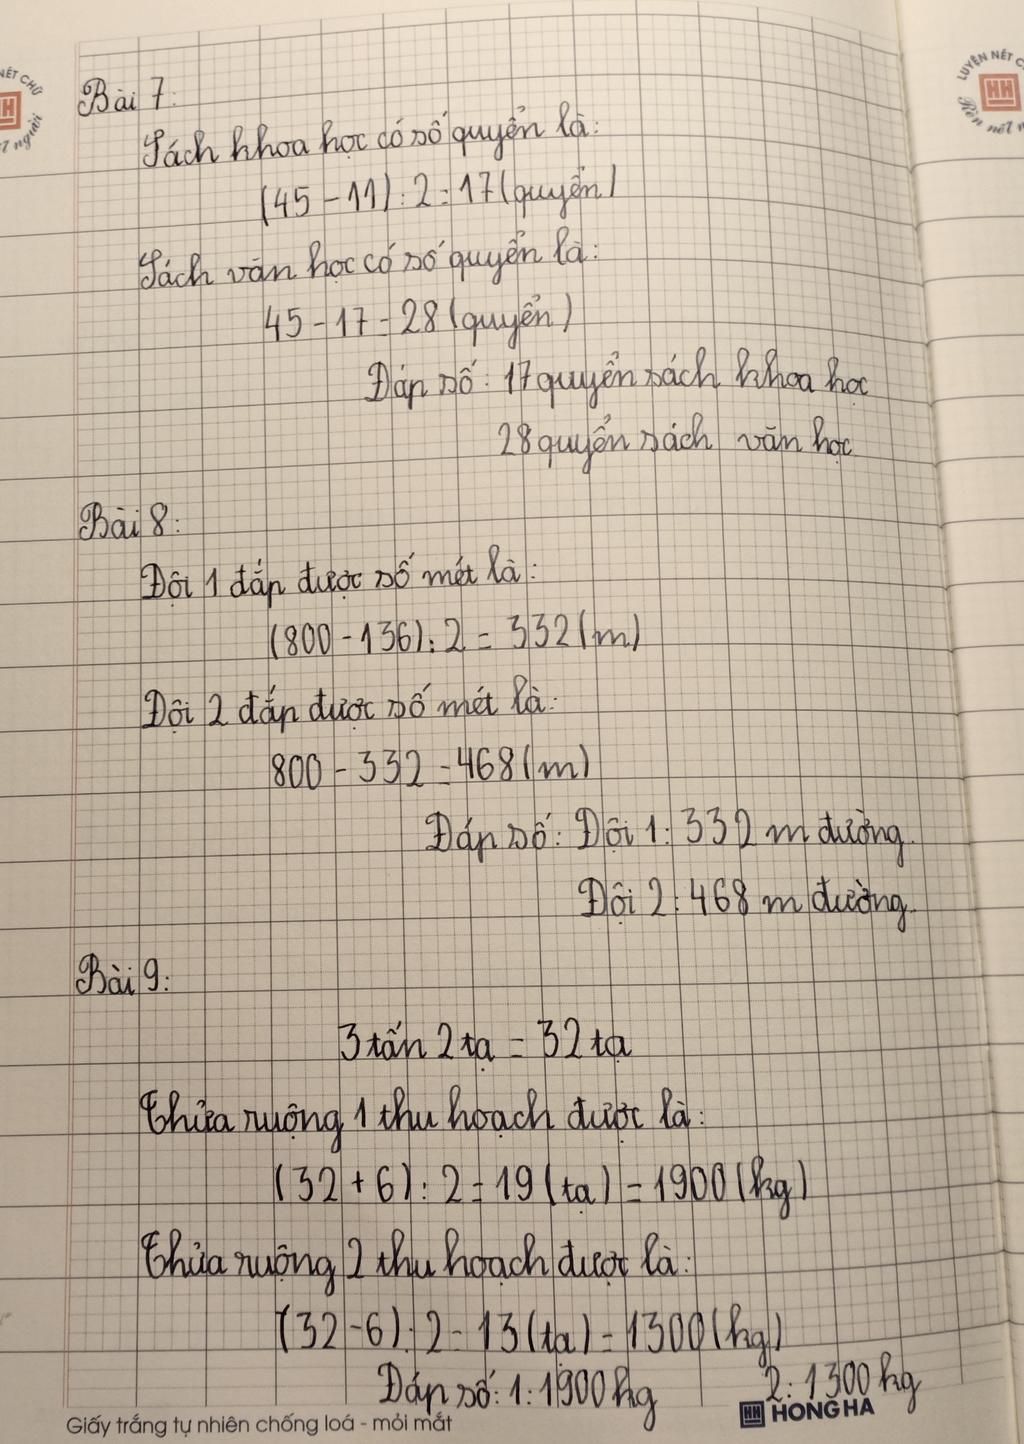 NÉT CHỮ
HH
nết người
LUYỆN NÉT C
HH
Rèn nết n
Bài 7:
Sách khoa học có số quyển là:
(45 - 11) : 2 = 17 (quyển)
Sách văn học có số quyển là:
45 - 17 = 28 (quyển)
Đáp số: 17 quyển sách khoa học
28 quyển sách văn học
Bài 8:
Đội 1 đắp được số mét là:
(800 - 136) : 2 = 332 (m)
Đội 2 đắp được số mét là:
800 - 332 = 468 (m)
Đáp số: Đội 1: 332 m đường.
Đội 2: 468 m đường.
Bài 9:
3 tấn 2 tạ = 32 tạ
Thửa ruộng 1 thu hoạch được là:
(32 + 6) : 2 = 19 (tạ) = 1900 (kg)
Thửa ruộng 2 thu hoạch được là:
(32 - 6) : 2 = 13 (tạ) = 1300 (kg)
Đáp số: 1: 1900 kg 2: 1300 kg
Giấy trắng tự nhiên chống loá - mỏi mắt
HH HONG HA